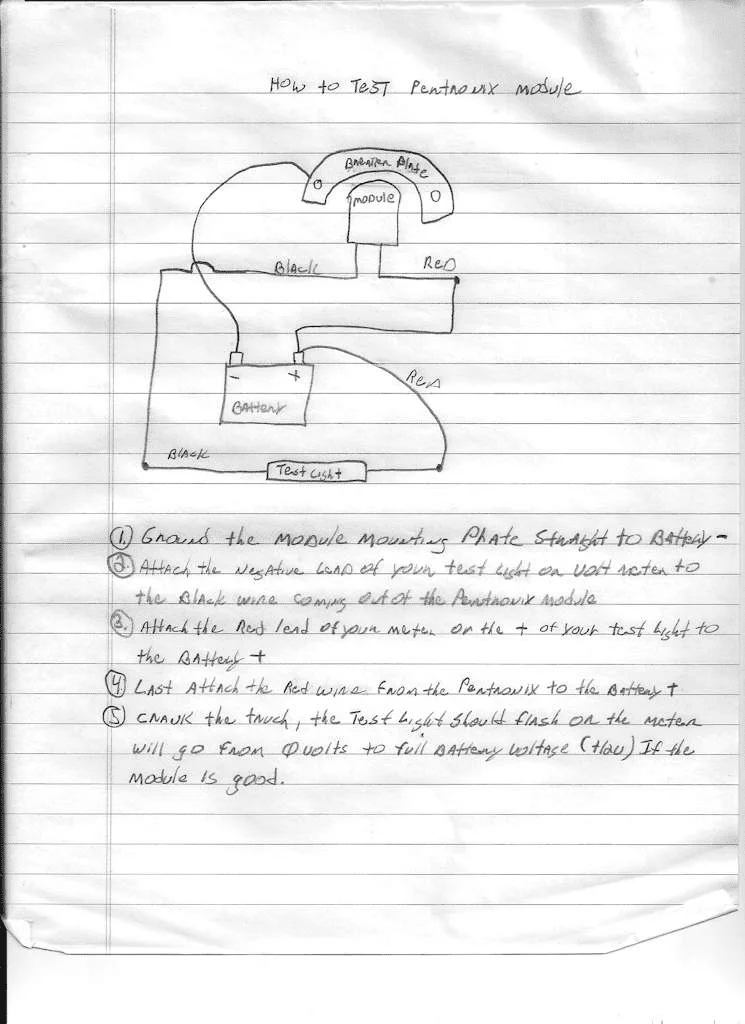 How to Test Pentronix Module
Breaker Plate
Module
Black
Red
- +
Battery
Red
Black
Test Light
1. Ground the Module Mounting Plate Straight to Battery -
2. Attach the Negative Lead of your test light or volt meter to
the Black wire coming out of the Pentronix Module
3. Attach the Red lead of your meter or the + of your test light to
the Battery +
4. Last Attach the Red wire from the Pentronix to the Battery +
5 Crank the truck, the Test Light should flash or the meter
will go from 0 volts to full Battery voltage (12v) If the
Module is good.